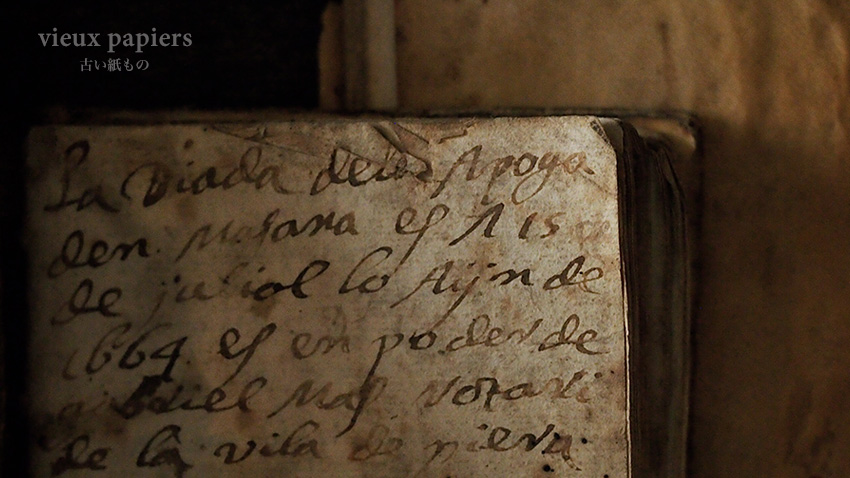 vieux papiers
古い紙もの
La viada dels Apoga
den Masana es A 15 de
de juliol lo Aÿn de
1664 es en poder de
gabriel Mas Notari
de la vila de piera